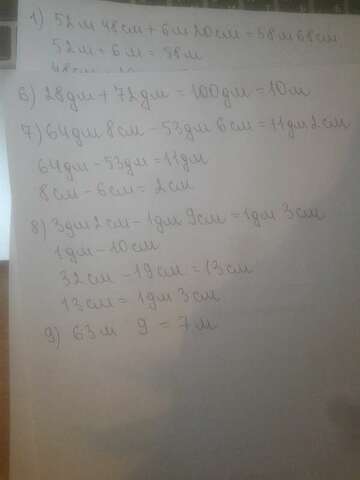 1) 52м 48см + 6м 20см = 58м 68см
52м + 6м = 58м
48см
6) 28дм + 72дм = 100дм = 10м
7) 64дм 8см - 53дм 6см = 11дм 2см
64дм - 53дм = 11дм
8см - 6см = 2см
8) 3дм 2см - 1дм 9см = 1дм 3см
1дм - 10см
32см - 19см = 13см
13см = 1дм 3см
9) 63м 9 = 7м